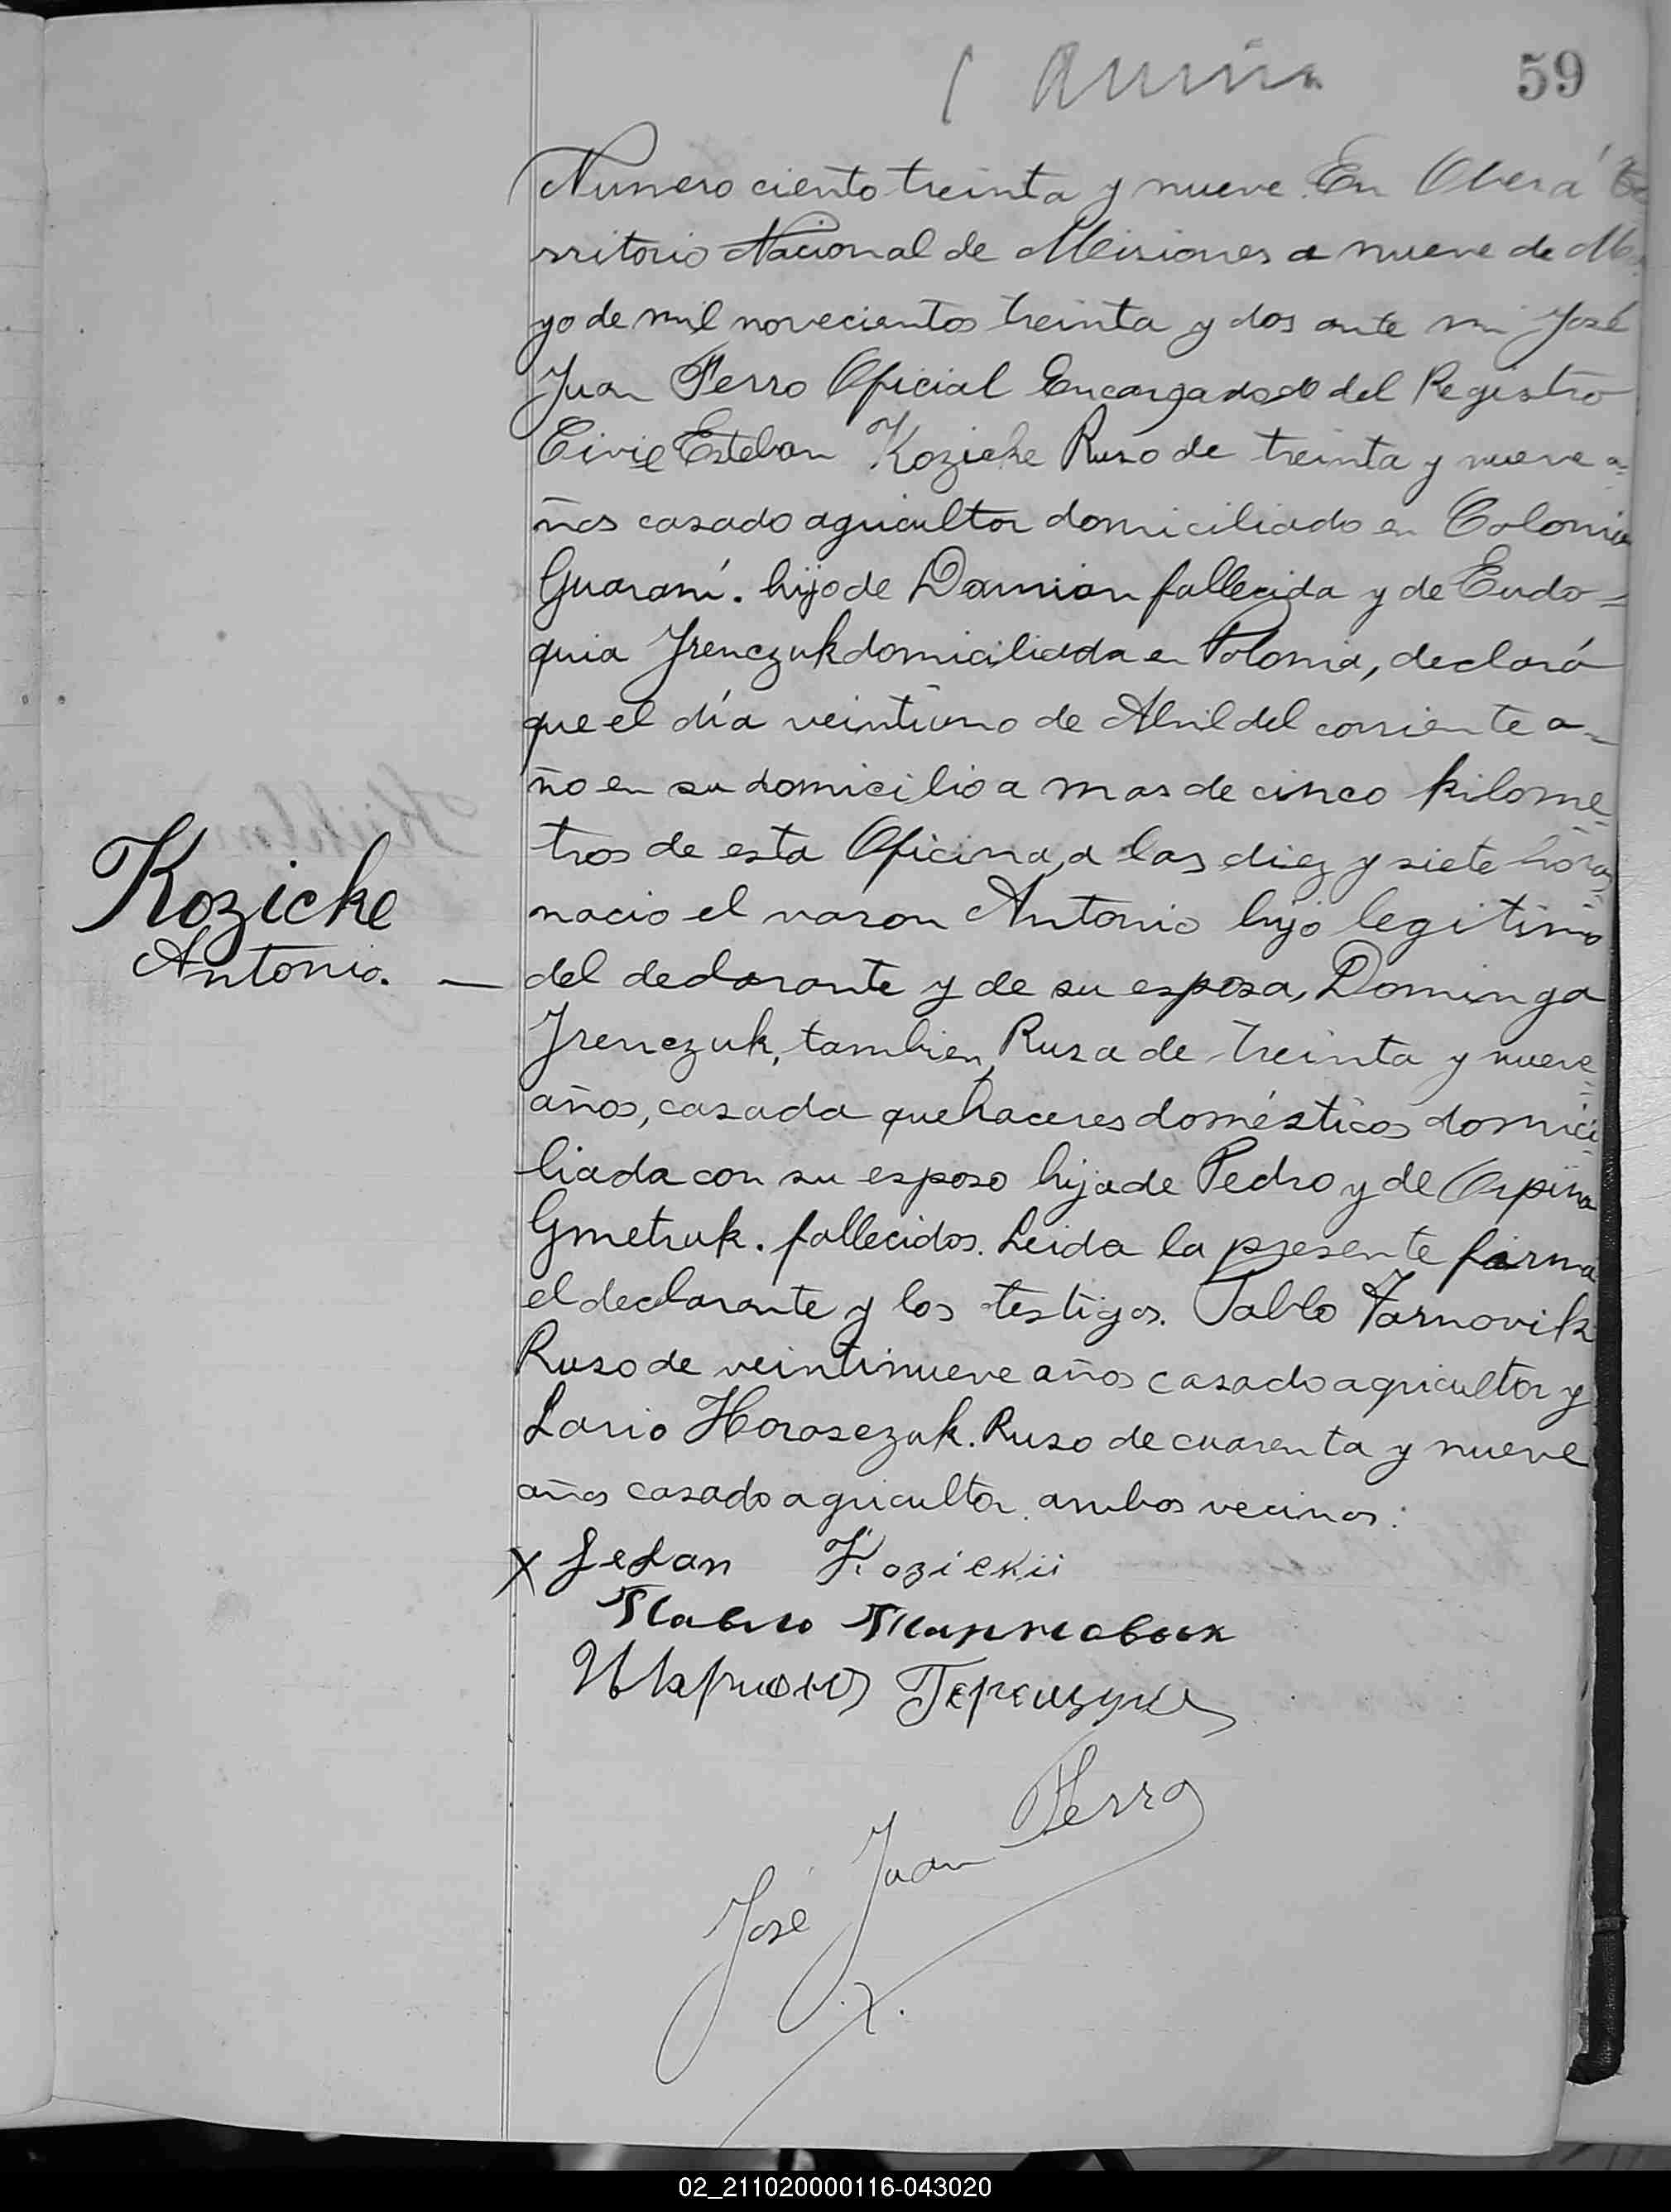 59
Numero ciento treinta y nueve. En Oberá Te
rritorio Nacional de Misiones a nueve de Ma
yo de mil novecientos treinta y dos ante mi José
Juan Ferro Oficial Encargado del Registro
Civil Esteban Kozicke Ruso de treinta y nueve a=
ños casado agricultor domiciliado en Colonia
Guaraní. hijo de Damian fallecida y de Eudo=
quia Jrenczuk domiciliada en Polonia, declaró
que el día veintiuno de Abril del corriente a=
ño en su domicilio a mas de cinco kilome=
tros de esta Oficina, a las diez y siete horas
nacio el varon Antonio hijo legitimo
Kozicke
Antonio. —
del declarante y de su esposa, Dominga
Jrenczuk, tambien, Rusa de treinta y nueve
años, casada quehaceres domésticos domici=
liada con su esposo hija de Pedro y de Orpina
Gmetruk. fallecidos. Leida la presente firma
el declarante y los testigos. Pablo Tarnovik
Ruso de veintinueve años casado agricultor y
Lario Horosezuk. Ruso de cuarenta y nueve
años casado agricultor. ambos vecinos:
X Stefan Kozickii
Павло Тарновык
Иларион
José Juan Ferro
02_211020000116-043020